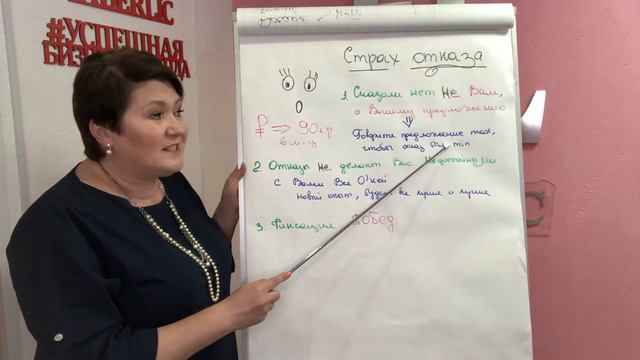 #УСПЕШНАЯ
Страх отказа
1. Сказали нет не Вам,
а Вашему предложению
₽ ⇒ 90 т.р
в м-ц
Говорите предложение так,
чтобы отказ был min
2. Отказы не делают Вас недостойными
С Вами Все О'кей
новый опыт, будет все лучше и лучше
3. Фиксация Побед